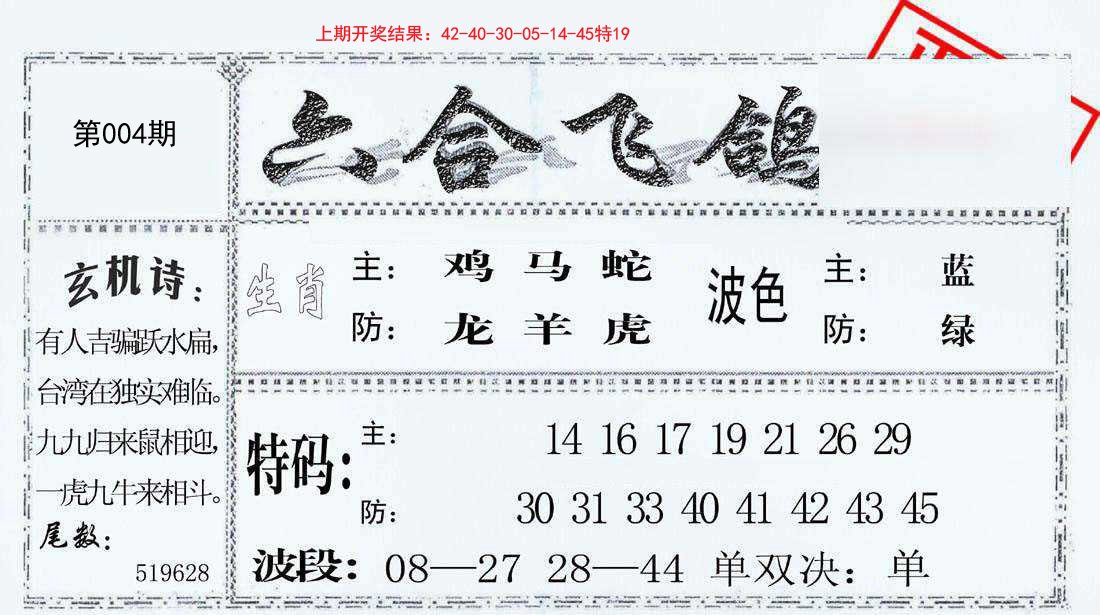 上期开奖结果：42-40-30-05-14-45特19
第004期
六合飞鸽
玄机诗：
有人吉骗跃水扁，
台湾在独实难临。
九九归来鼠相迎，
一虎九牛来相斗。
尾数：
519628
生肖
主： 鸡 马 蛇
防： 龙 羊 虎
波色
主： 蓝
防： 绿
特码：
主： 14 16 17 19 21 26 29
防： 30 31 33 40 41 42 43 45
波段：08—27 28—44 单双决：单